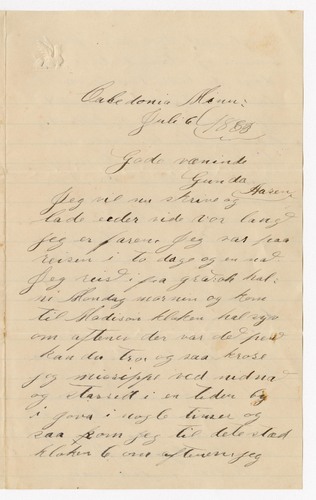 Caledonia Minn:
Juli 6 1883
Gode væninde
Gunda Hasen
Jeg vil nu skrive og
lade eder vide vor langt
jeg er faren Jeg var paa
reisen i to dage og en nat
Jeg reist i fra
Mondag mornen og kom
til Madison kloken hal syv
om aftenen der var det pent
kan du tro og saa krose
jeg missippe ved
og i en liden by
i i nogle timer og
saa kom jeg til dete stæd
kloken 6 om aftenen jeg